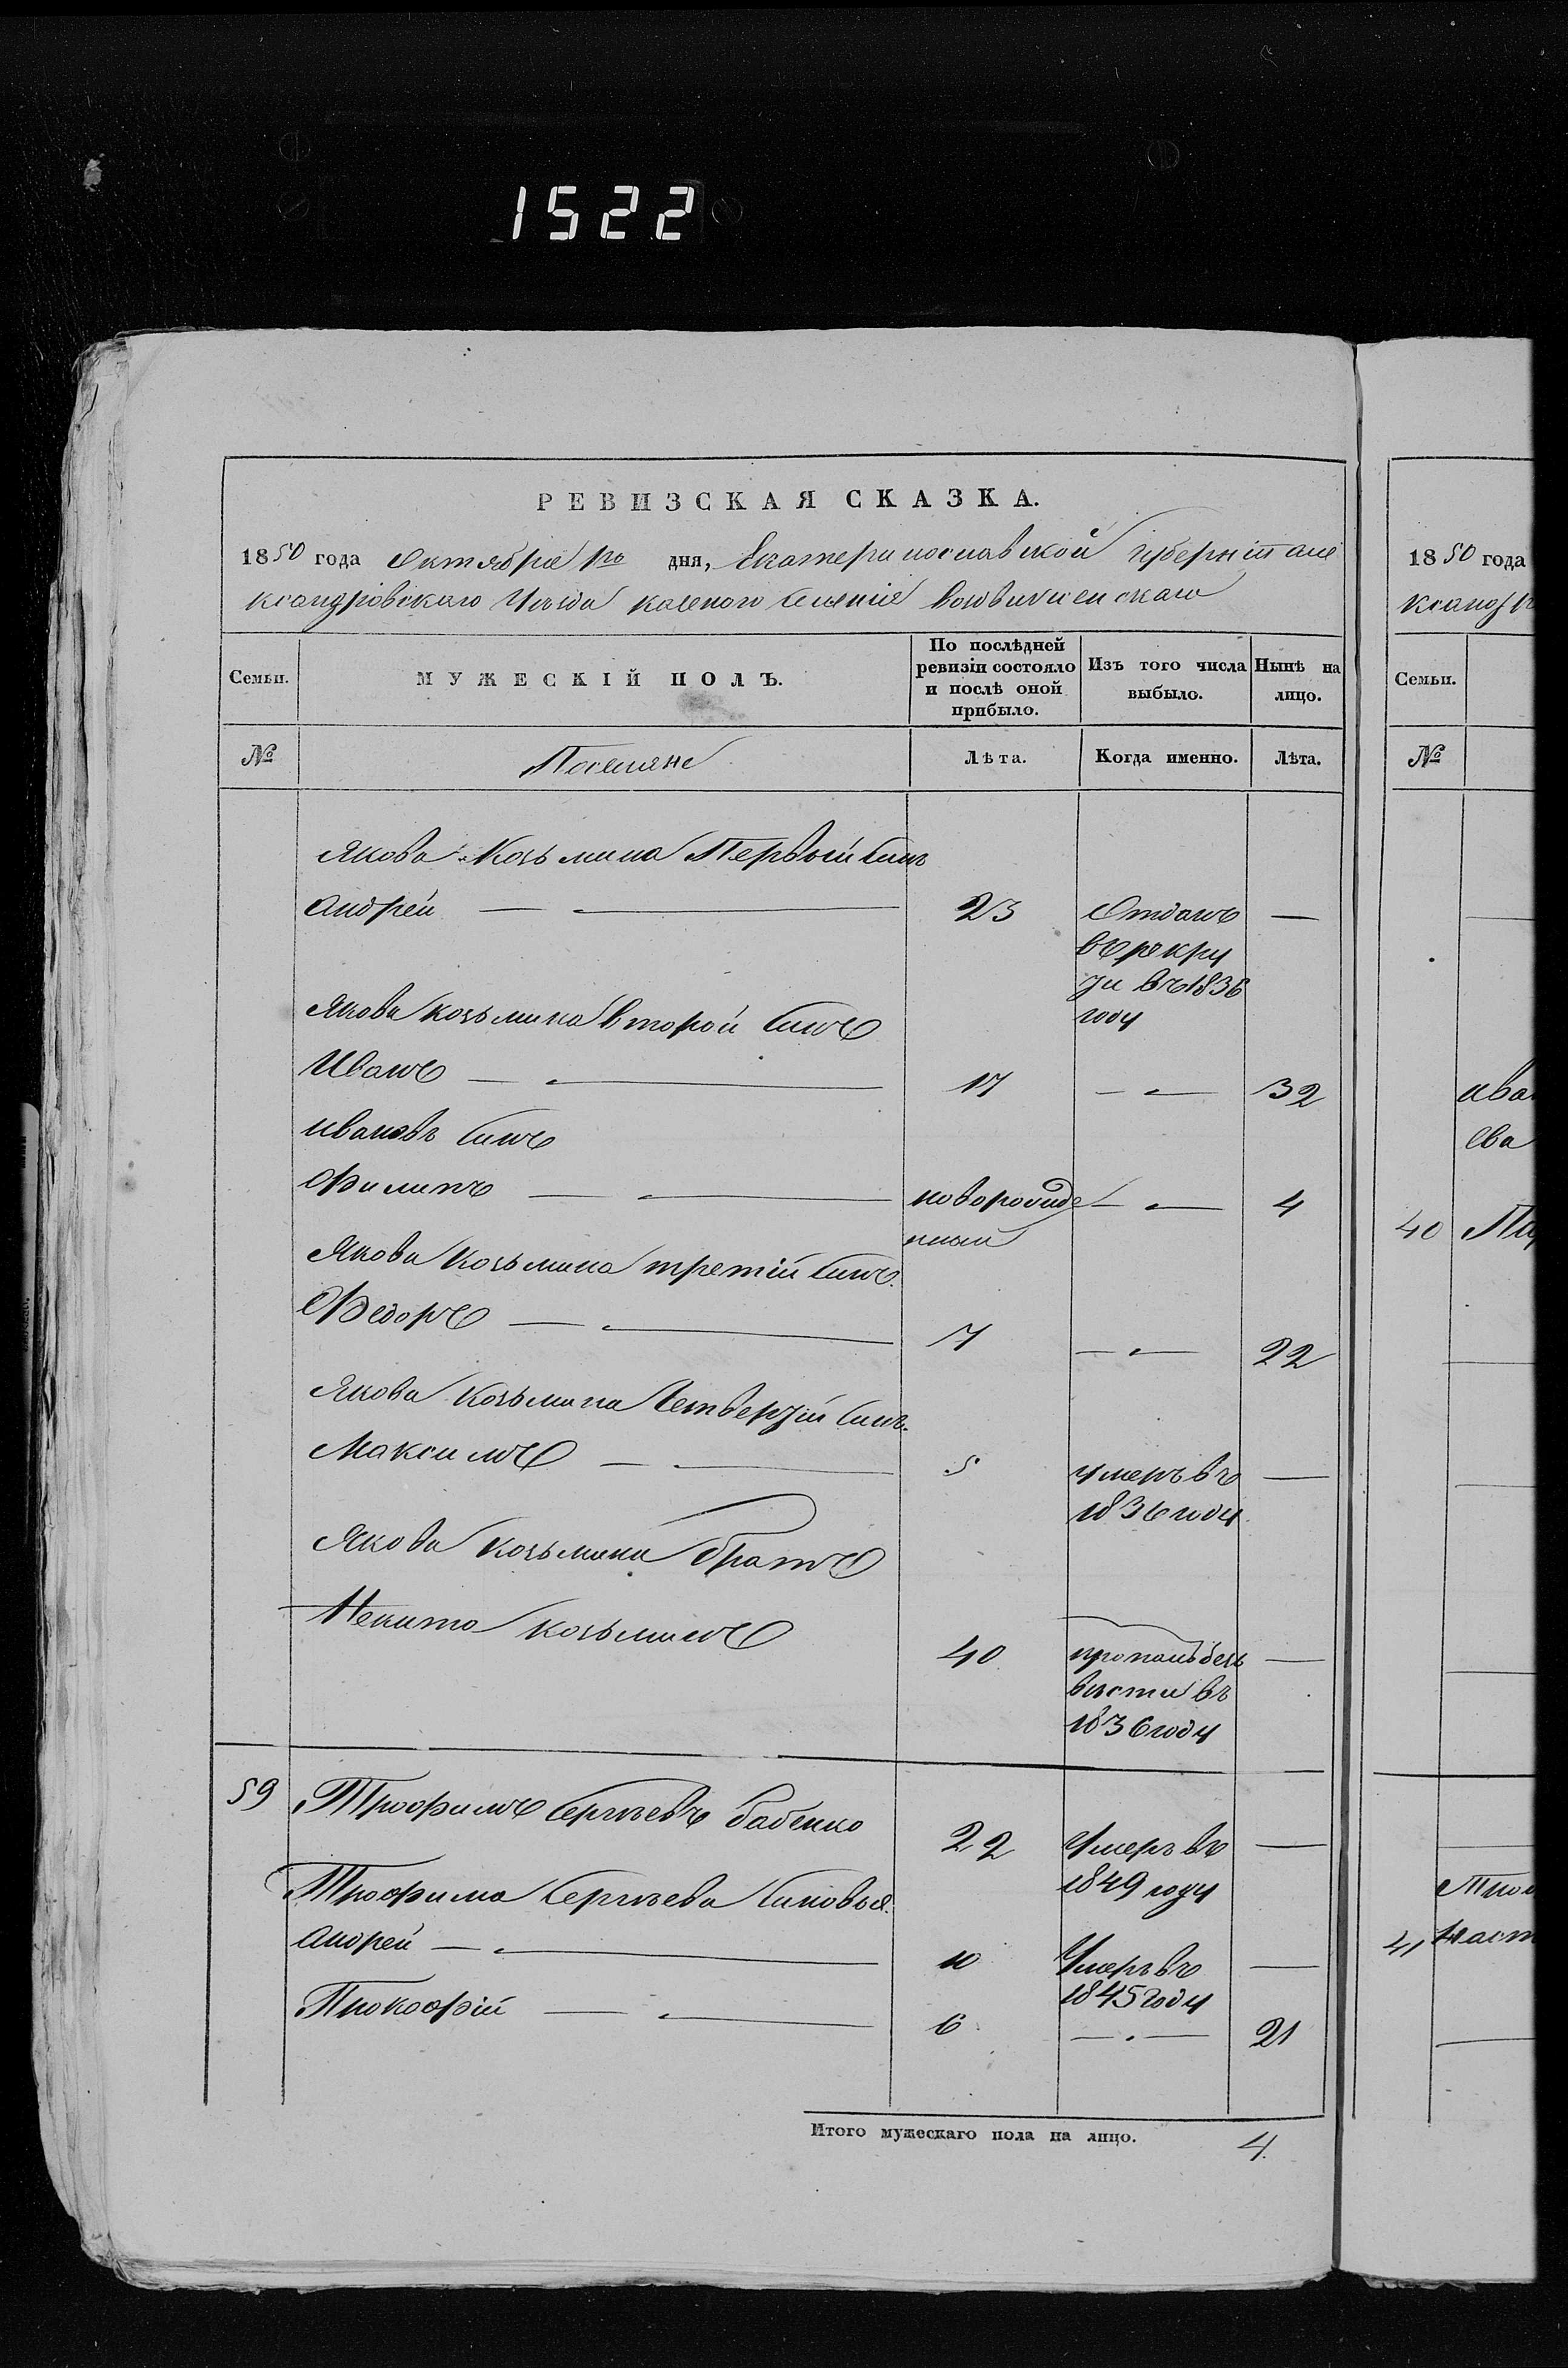 1522
РЕВИЗСКАЯ СКАЗКА.
1850 года Октября го дня, Екатеринославской губерніи але
ксандровскаго Уѣзда казеного Селеніе
Семьи.
МУЖЕСКІЙ ПОЛЪ.
По послѣдней ревизіи состояло и послѣ оной прибыло.
Изъ того числа выбыло.
Нынѣ на лицо.
№
Поселяне
Лѣта.
Когда именно.
Лѣта.
Якова Козьмина Первый Синъ
Андрей — — 23 Отданъ —
въ рекру
ти въ 1836
году
Якова Козьмина второй Синъ
Иванъ — — 17 — — 32
Ивановъ Синъ
Филипъ — — новорожде — — 4
нный
Якова Козьмина третій Синъ
Федоръ — — 7 — — 22
Якова Козьмина Четвертій Синъ.
Максимъ — — 5 умеръ въ —
1836 году
Якова Козьмина братъ
Некита Козьминъ 40 пропалъ безъ —
вѣсти въ
1836 году
59 Трофимъ Сергѣевъ бабенко 22 Умеръ въ —
1849 году
Трофима Сергѣева Синовья.
Андрей — — 10 Умеръ въ —
1845 году
Прокофій — — 6 — — 21
Итого мужескаго пола на лицо. 4.
1850 года
Семьи.
№
ива
ева
40
41